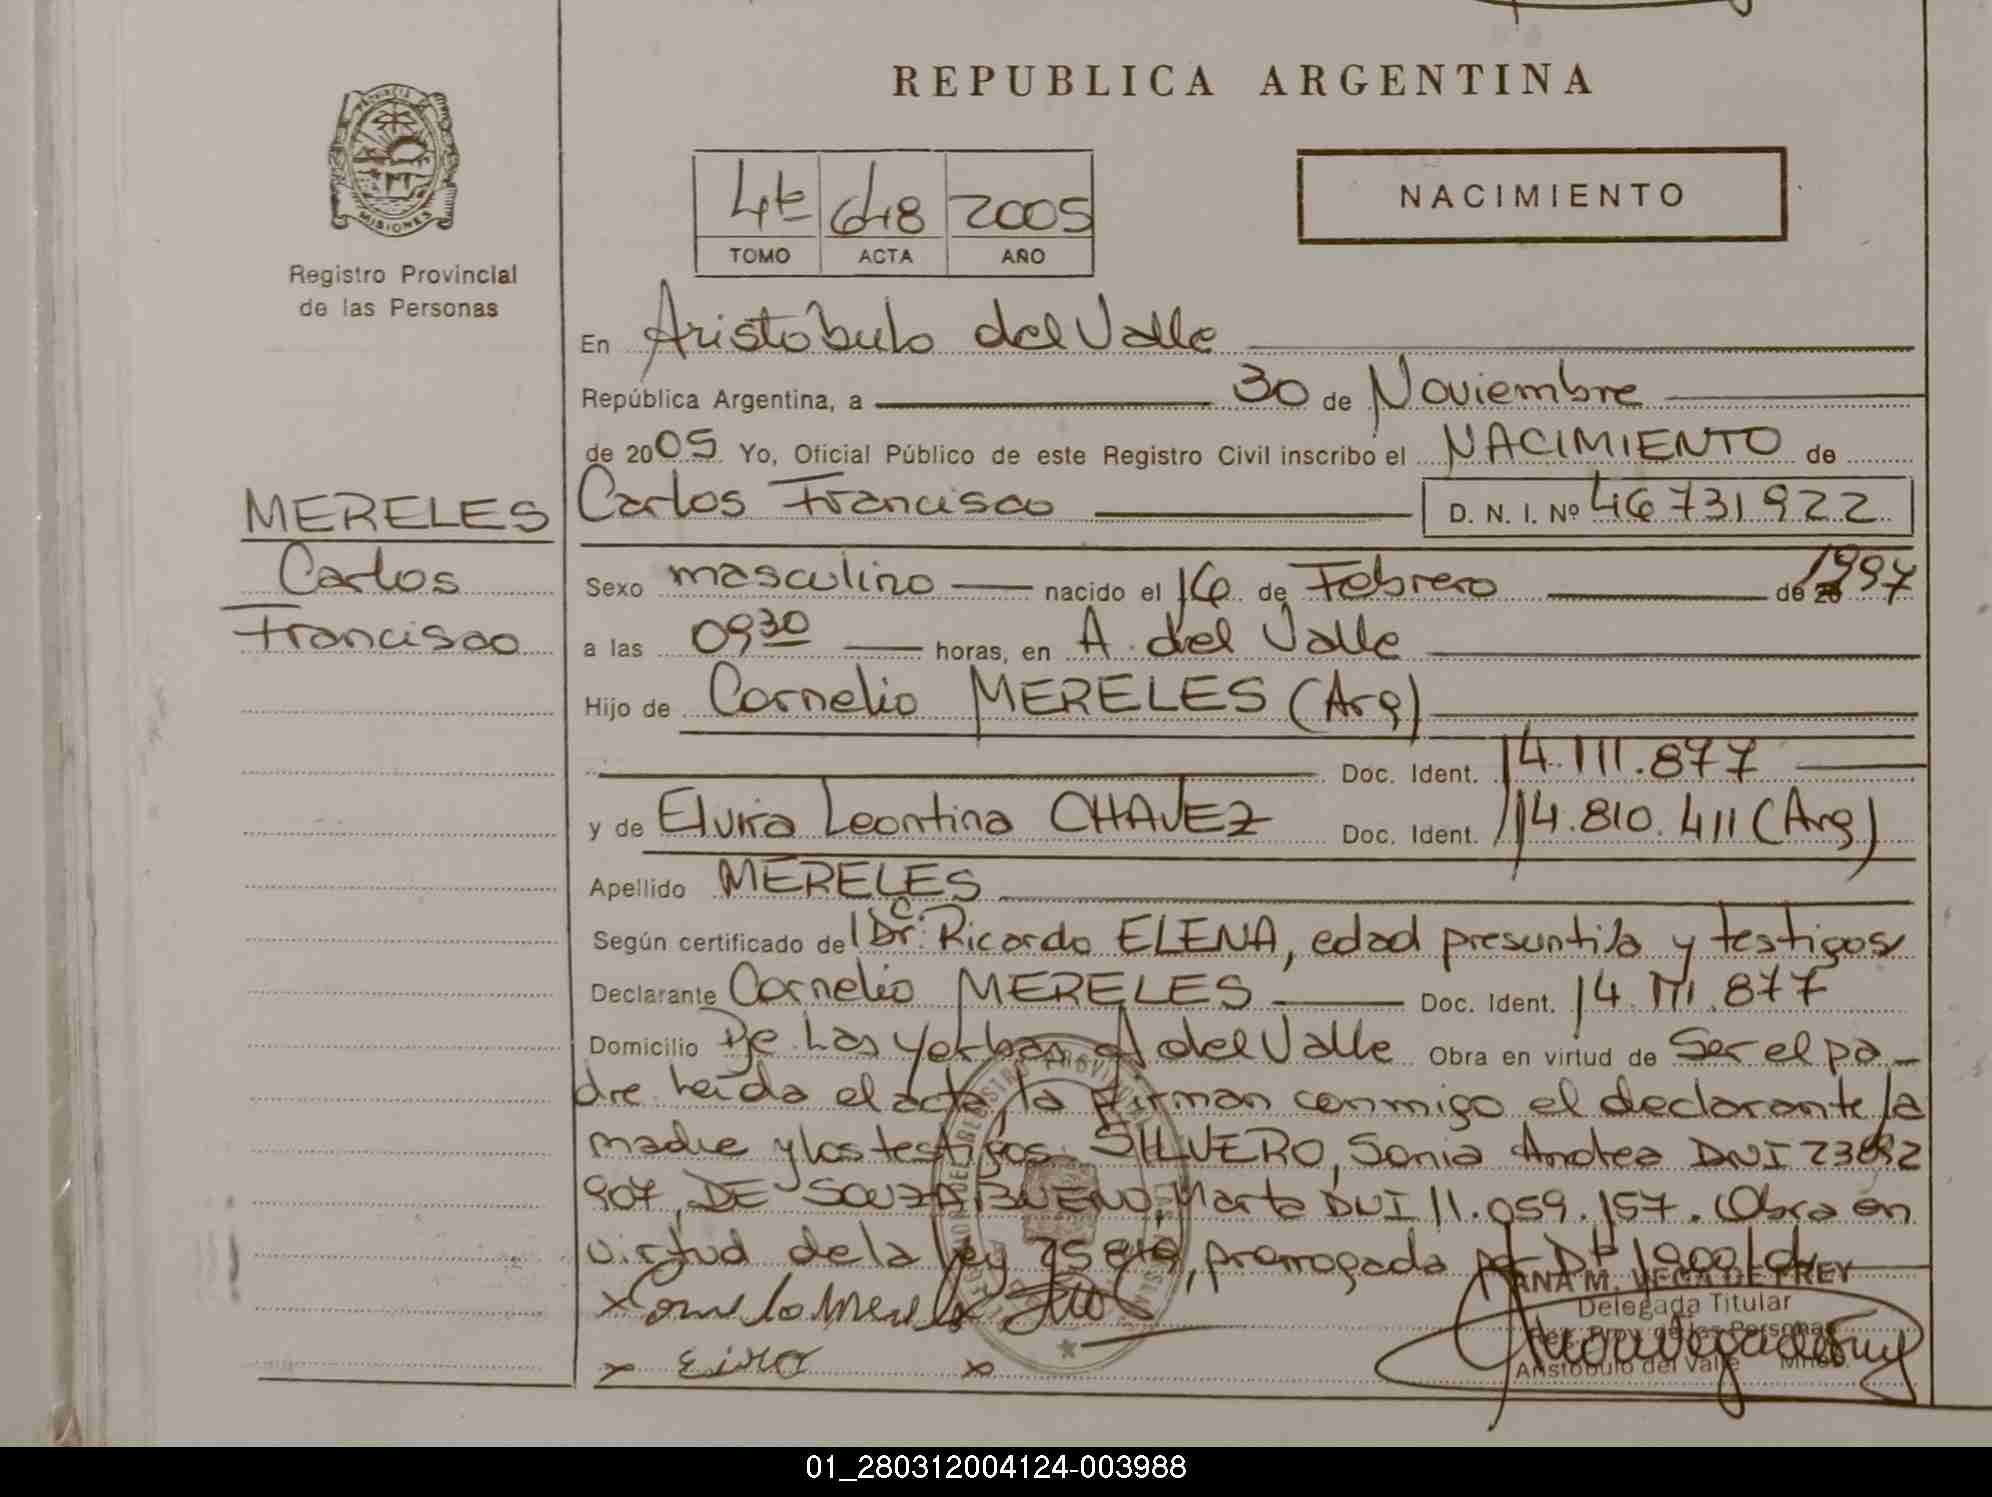 REPUBLICA ARGENTINA
PROVINCIA DE
MISIONES
Registro Provincial
de las Personas
4te 648 2005
TOMO ACTA AÑO
NACIMIENTO
En Aristóbulo del Valle
República Argentina, a 30 de Noviembre
de 2005 Yo, Oficial Público de este Registro Civil inscribo el NACIMIENTO de
MERELES
Carlos
Francisco
Carlos Francisco D. N. I. Nº 46731922
Sexo masculino nacido el 16 de Febrero de 1997
a las 09 30 horas, en A. del Valle
Hijo de Cornelio MERELES (Arg)
Doc. Ident. 14.111.877
y de Elvira Leontina CHAVEZ Doc. Ident. 14.810.411 (Arg)
Apellido MERELES
Según certificado del Dr. Ricardo ELENA, edad presuntiva y testigos
Declarante Cornelio MERELES Doc. Ident. 14.111.877
Domicilio Bº Las Yerbas A del Valle Obra en virtud de Ser el pa
dre leída el acta, la firman conmigo el declarante la
madre y los testigos SILVERO, Sonia Andrea DNI
907, DE SOUZA BUENO, Marta DNI 11.059.157. Obra en
virtud de la ley prorrogada por
ANA M. VEGA DE FREY
Delegada Titular
Reg. Prov. de las Personas
Aristóbulo del Valle Mnes.
01_280312004124-003988